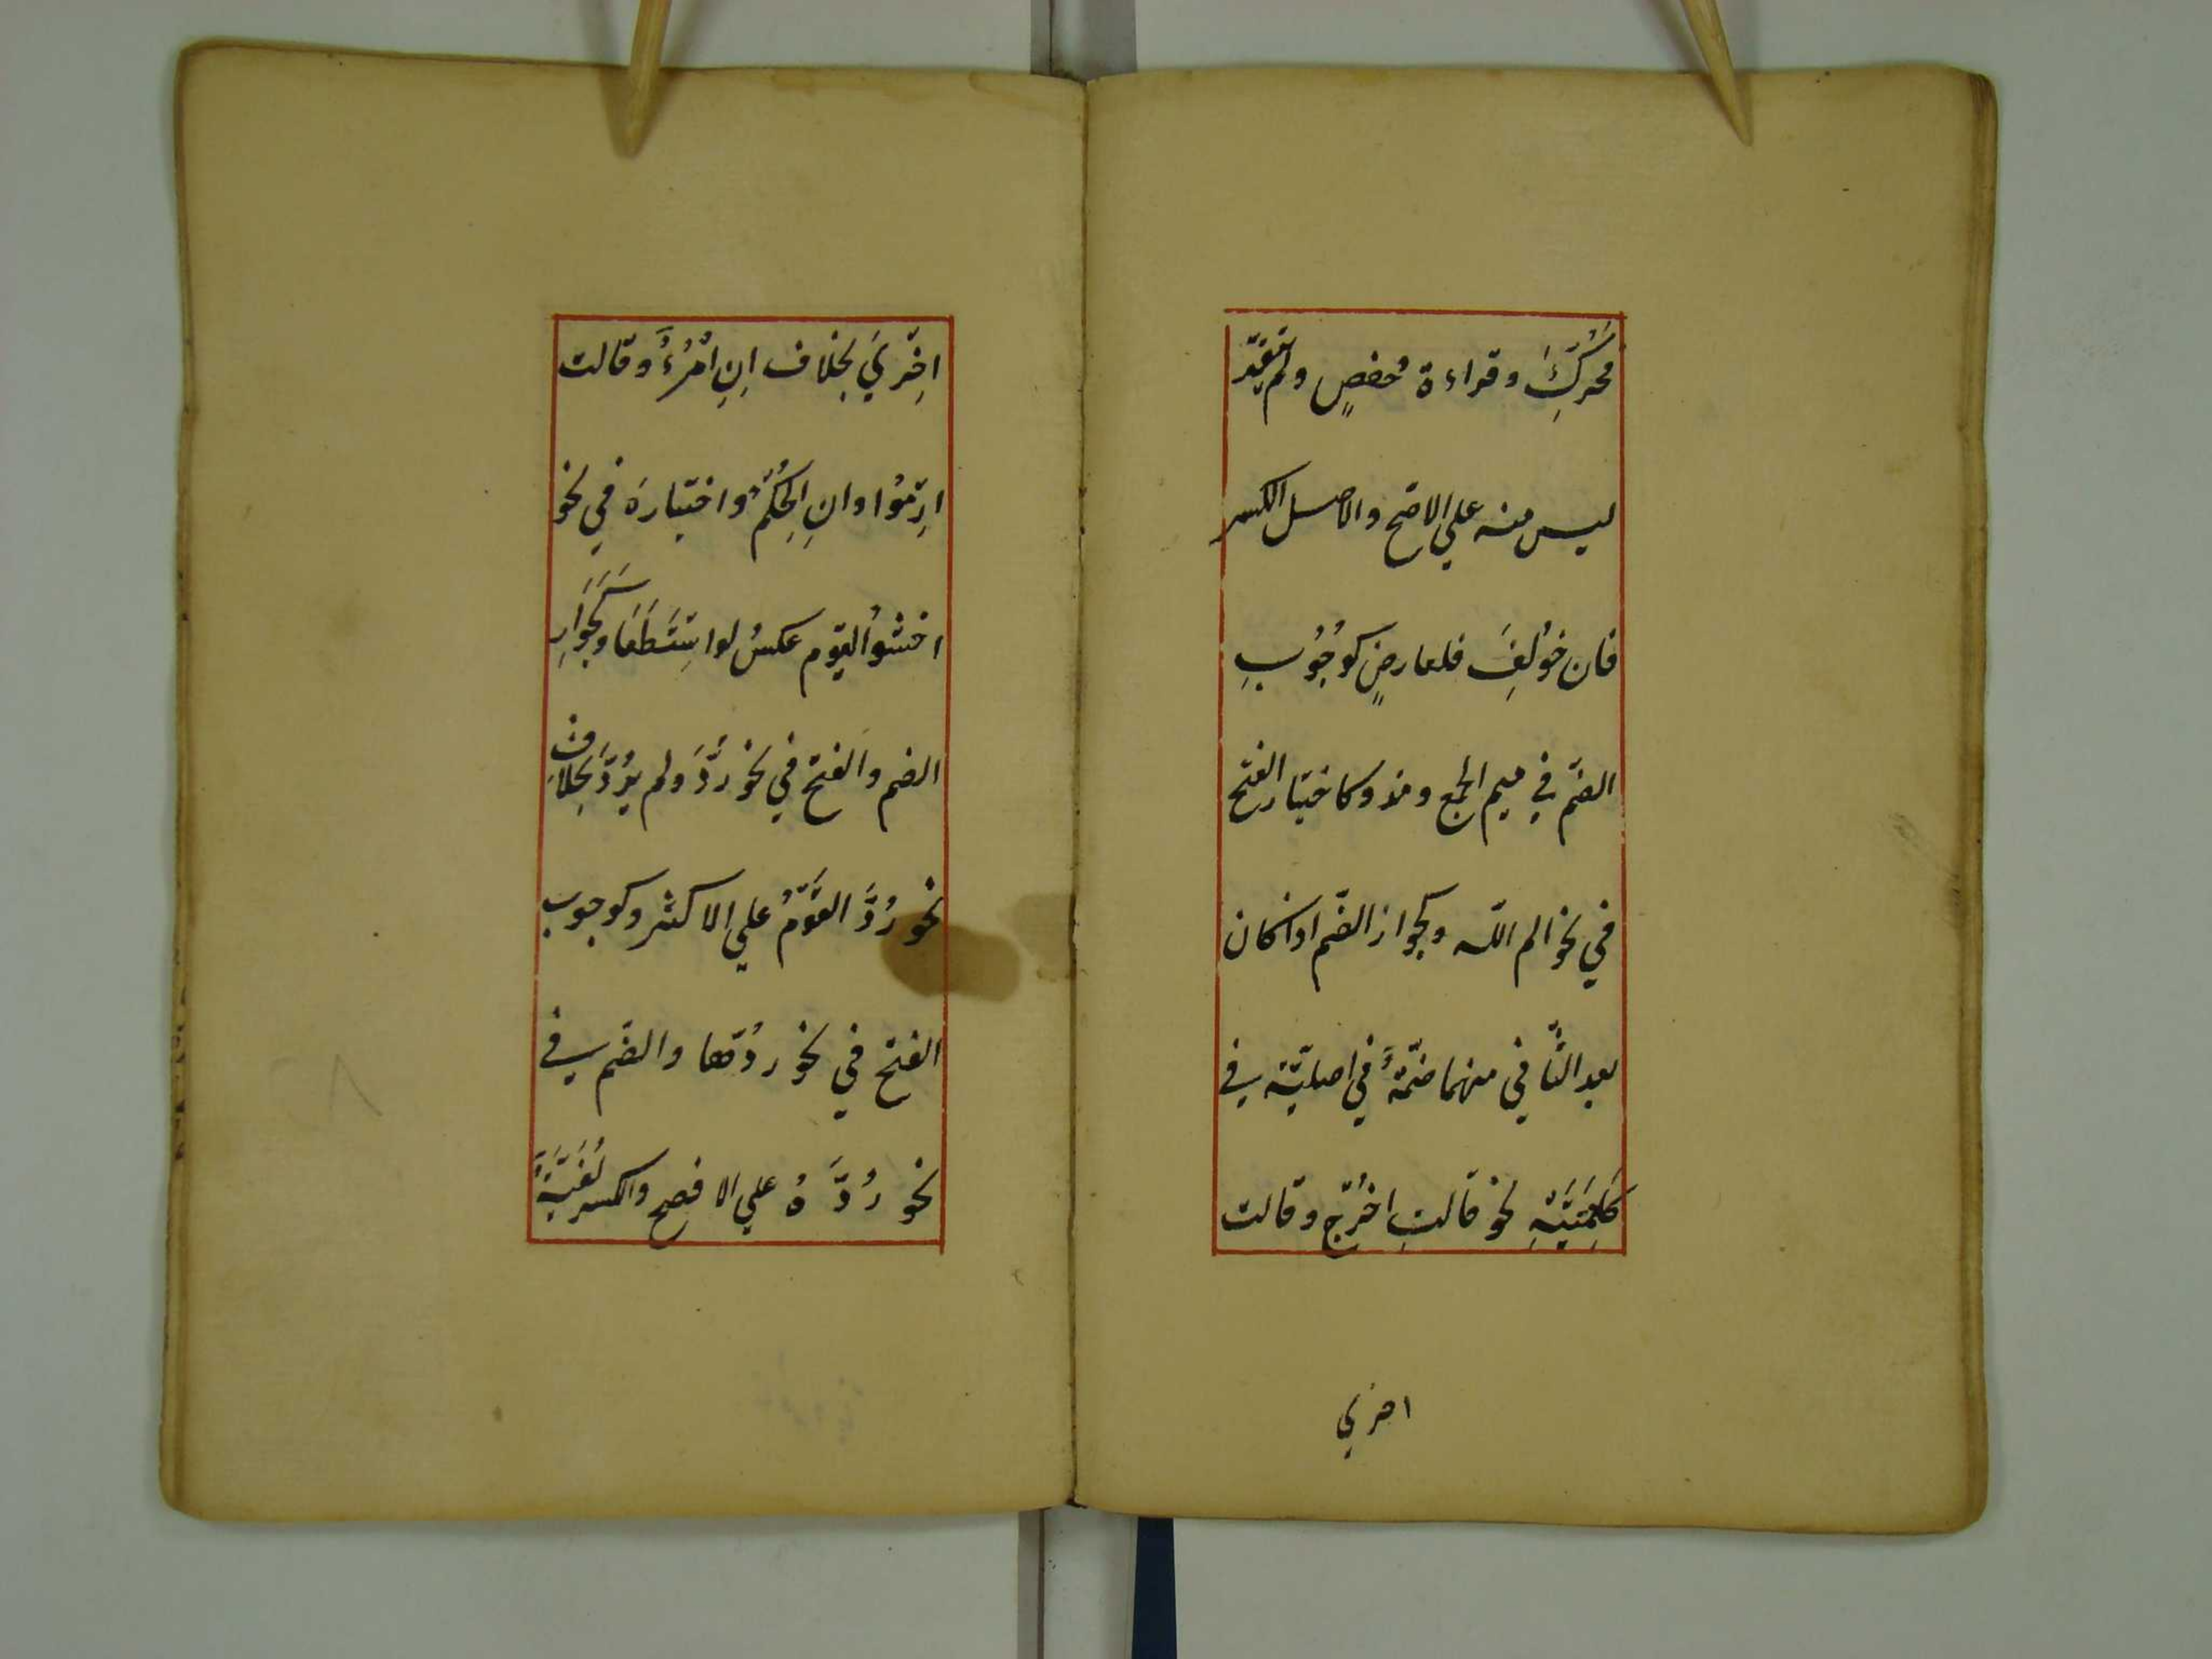 محركٌ وقراءة حفصٍ ولم يتقه
ليس منه علي الاصح والاصل الكسر
فان خُولِفَ فلعارضٍ كوُجُوبِ
الضم في ميم الجمع ومذ وكاختيار الفتح
في نحو الم اللّه وكجواز الضّم اذا كان
بعد الثّاني منهما ضمّةٌ اصليّة في
كلِمَتِهِ نحو قالتِ اخرُج وقالت
اخزي
اغزِيَ بخلاف اِنِ امْرُءٌ وقالت
ارِمُوا وانِ الحُكمُ واختياره في نحو
اخشوُا القوم عكسُ لو استَطَعنَا وكَجَوازِ
الضم والفتح في نحو رُدَّ ولم يرُدَّ بخلاف
نحو رُدَّ القَومَ علي الاكثر وكوجوب
الفتح في نحو رُدّها والضّم في
نحو رُدَّهُ علي الافصح والكسر لُغَيَّةٌ